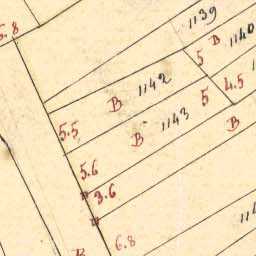 5.8
1139
B
1140
5
4.5
1142
B
5
B
1143
B
5.5
5.6
3.6
6.8
B